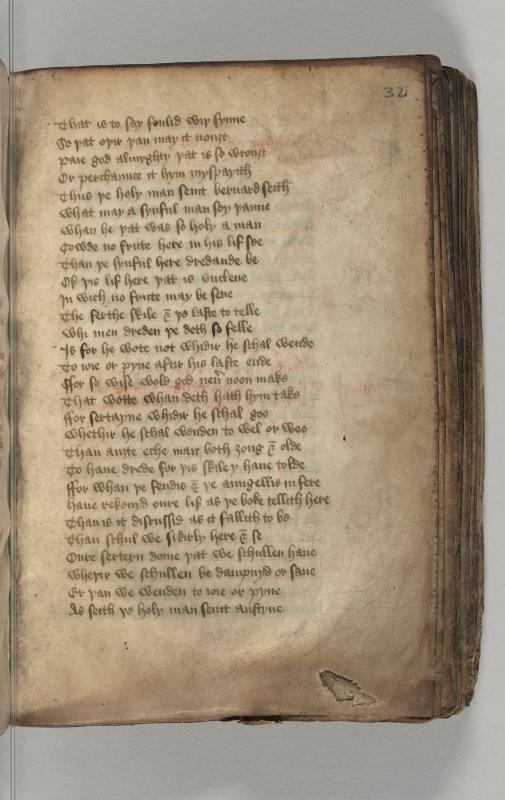 32
That is to say foulid wiþ synne
So þat oþir þan may it nouȝt
Paie god almyghty þat is so wrouȝt
Or perchaunce it hym myspayith
Thus þe holy man seint bernard seith
What may a synful man sey þanne
Whan he þat was so holy a man
Cowde no fricte here in his lif see
Than þe synful here dredande be
Of þis lif here þat is vnclene
In wich no fricte may be sene
The ferthe skile ⁊ þe laste to telle
Whi men dreden þe deth so felle
Is for he wote not whidir he schal wende
To ioie or pyne aftir his laste ende
Ffor so wise wold god neuer noon make
That wotte whan deth hath hym take
Ffor sertayne whidir he schal goo
Whethir he schal wenden to wel or woo
Than auȝte eche man both ȝong ⁊ olde
To haue drede for þis skile y haue tolde
Ffor whan þe fendis ⁊ þe aungellis in fere
Haue rekenyd oure lif as þe boke tellith here
Than is it discussid as it fallith to be
Than schul we sikirly here ⁊ se
Oure serteyn dome þat we schullen haue
Wheþir we schullen be dampnyd or saue
Er þan we wenden to ioie or pyne
As seith þe holy man seint austyne